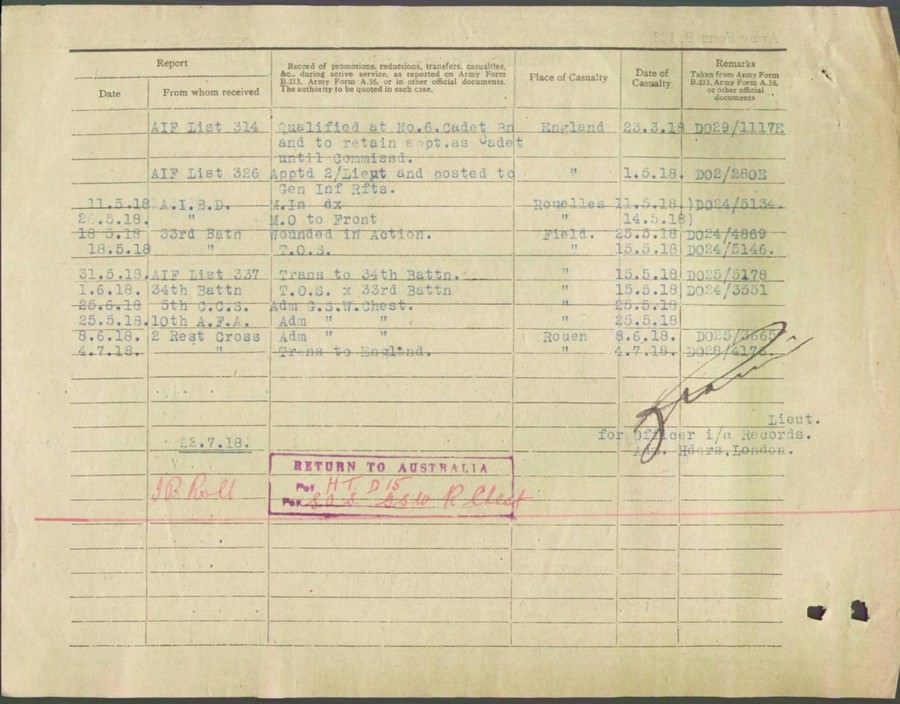 Report
Record of promotions, reductions, transfers, casualties,
&c., during active service, as reported on Army Form
B.213, Army Form A.36, or in other official documents.
The authority to be quoted in each case.
Place of Casualty
Date of
Casualty
Remarks
Taken from Army Form
B.213, Army Form A.36,
or other official
documents
Date From whom received
AIF List 314 Qualified at No.6.Cadet Bn England 23.3.18 DO29/1117E
and to retain appt.as Cadet
until Commissd.
AIF List 326 Apptd 2/Lieut and posted to " 1.5.18. DO2/280E
Gen Inf Rfts.
11.5.18 A.I.B.D. M.In dx Rouelles 11.5.18.)DO24/5134.
" M.O to Front " 14.5.18)
18 5.18 33rd Batn Wounded in Action. Field. 25.5.18 DO24/4869
18.5.18 " T.O.S. " 15.5.18 DO24/5146.
31.5.18. AIF List 337 Trans to 34th Battn. " 15.5.18 DO25/5178
1.6.18. 34th Battn T.O.S. x 33rd Battn " 15.5.18 DO24/3551
25.6.18 5th C.C.S. Adm G.S.W.Chest. " 25.5.18
25.5.18. 10th A.F.A. Adm " " " 25.5.18
8.6.18. 2 Rest Cross Adm " " Rouen 8.6.18. DO25/3665
4.7.18. " Trans to England. " 4.7.18. DO28/4176.
Lieut.
for Officer i/c Records.
22.7.18. Hdqrs,London.
RETURN TO AUSTRALIA
I B Roll Per H.T. D15
For G.S.W R Chest